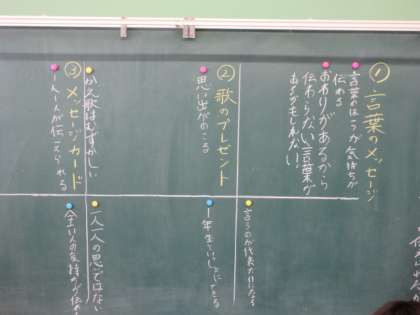 ① 言葉のメッセージ
言葉のほうが気持ちが
伝わる
おわりがあるから
伝わらない言葉が
あるかもしれない。
言うのが代表だけになる
② 歌のプレゼント
思い出がのこる
1年生といっしょにできる
かえ歌はむずかしい
一人一人の思いではない
③ メッセージカード
一人一人が伝えられる
全い人の気持ちが伝わ